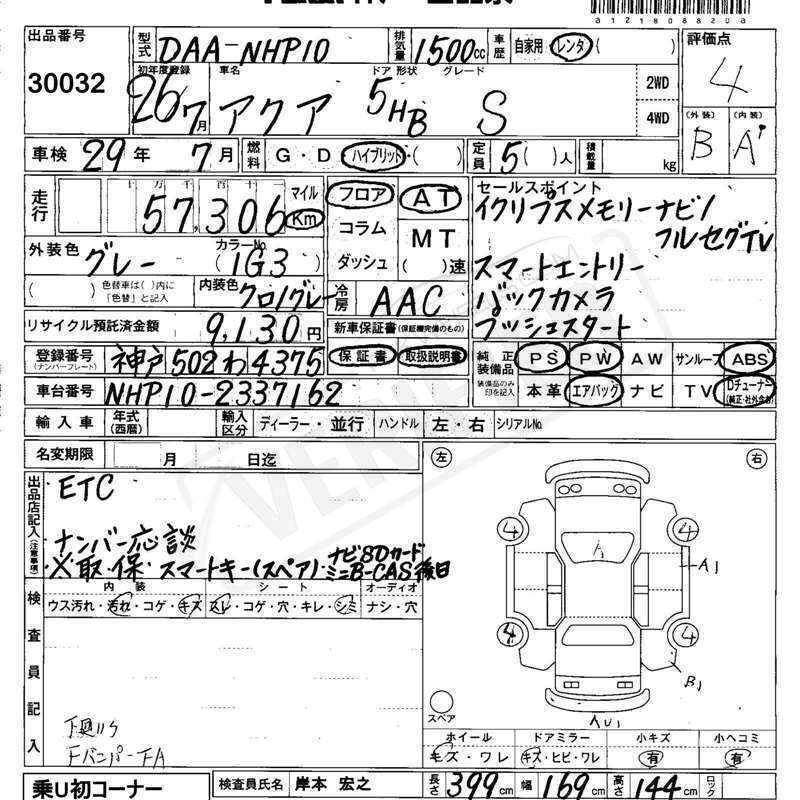 01218088200
出品番号 30032
型式 DAA-NHP10 排気量 1500cc 車歴 自家用・レンタ( )
評価点 4
初年度登録 26 7月 車名 アクア ドア 形状 5HB グレード S 2WD 4WD
(外装) B (内装) A
車検 29年 7月 燃料 G・D・ハイブリット・( ) 定員 5( )人 積載量 kg
走行 十万千百十一 57,306 マイル Km
フロア コラム ダッシュ
AT MT ( )速
セールスポイント
イクリプスメモリーナビ/
フルセグTV
スマートエントリー
バックカメラ
プッシュスタート
外装色 グレー カラーNo. (1G3)
( ) 色替車は( )内に「色替」と記入 内装色 クロ/グレー
冷房 AAC
リサイクル預託済金額 9,130円 新車保証書(保証継完備のもの)
登録番号(ナンバープレート) 神戸502わ4375 保証書 取扱説明書
純正装備品 装備品のみ印を記入 PS PW AW サンルーフ ABS
車台番号 NHP10-2337162 本革 エアバッグ ナビ TV Dチューナー(純正・社外含む)
輸入車 年式(西暦) 輸入区分 ディーラー・並行 ハンドル 左・右 シリアルNo.
名変期限 月 日迄
左 右
出品店記入(注意事項)
ETC
ナンバー応談
※取・保・スマートキー(スペア)・ナビSDカード
ミニB-CAS後日
検査員記入
内装 シート オーディオ
ウス汚れ・汚れ・コゲ・キズ スレ・コゲ・穴・キレ・シミ ナシ・穴
4 4
A
A1
4 4
B1
スペア
AU1
下廻りS
FバンパーFA
ホイール ドアミラー 小キズ 小ヘコミ
キズ・ワレ キズ・ヒビ・ワレ 有 有
乗U初コーナー 検査員氏名 岸本 宏之 長さ 399cm 幅 169cm 高さ 144cm ロック